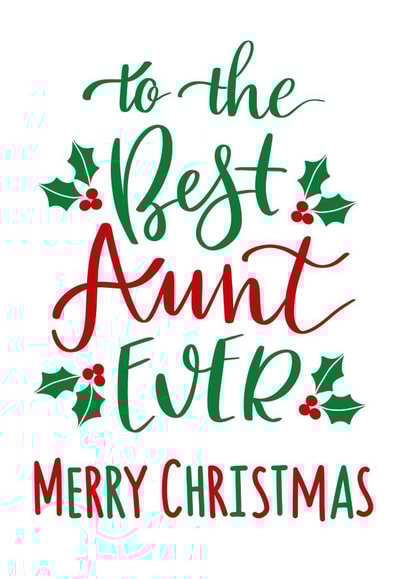 to the
Best
Aunt
EVER
MERRY CHRISTMAS